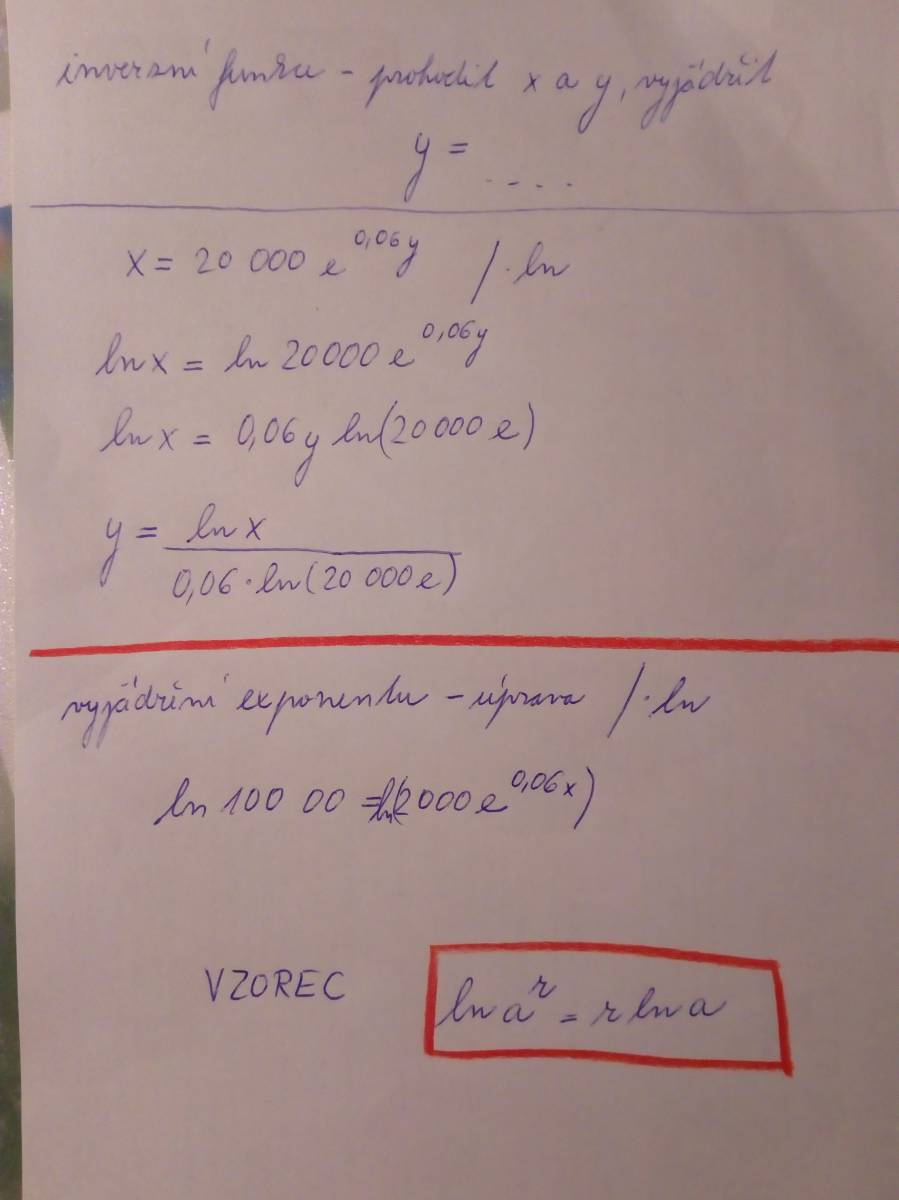 inverzní funkce - prohodit x a y, vyjádřit
y = ....
x = 20 000 e^0,06y / · ln
ln x = ln 20000 e^0,06y
ln x = 0,06y ln(20 000 e)
y = ln x / 0,06 · ln(20 000 e)
vyjádření exponentu - úprava / · ln
ln 100 00 = ln(2000 e^0,06x)
VZOREC ln a^r = r ln a